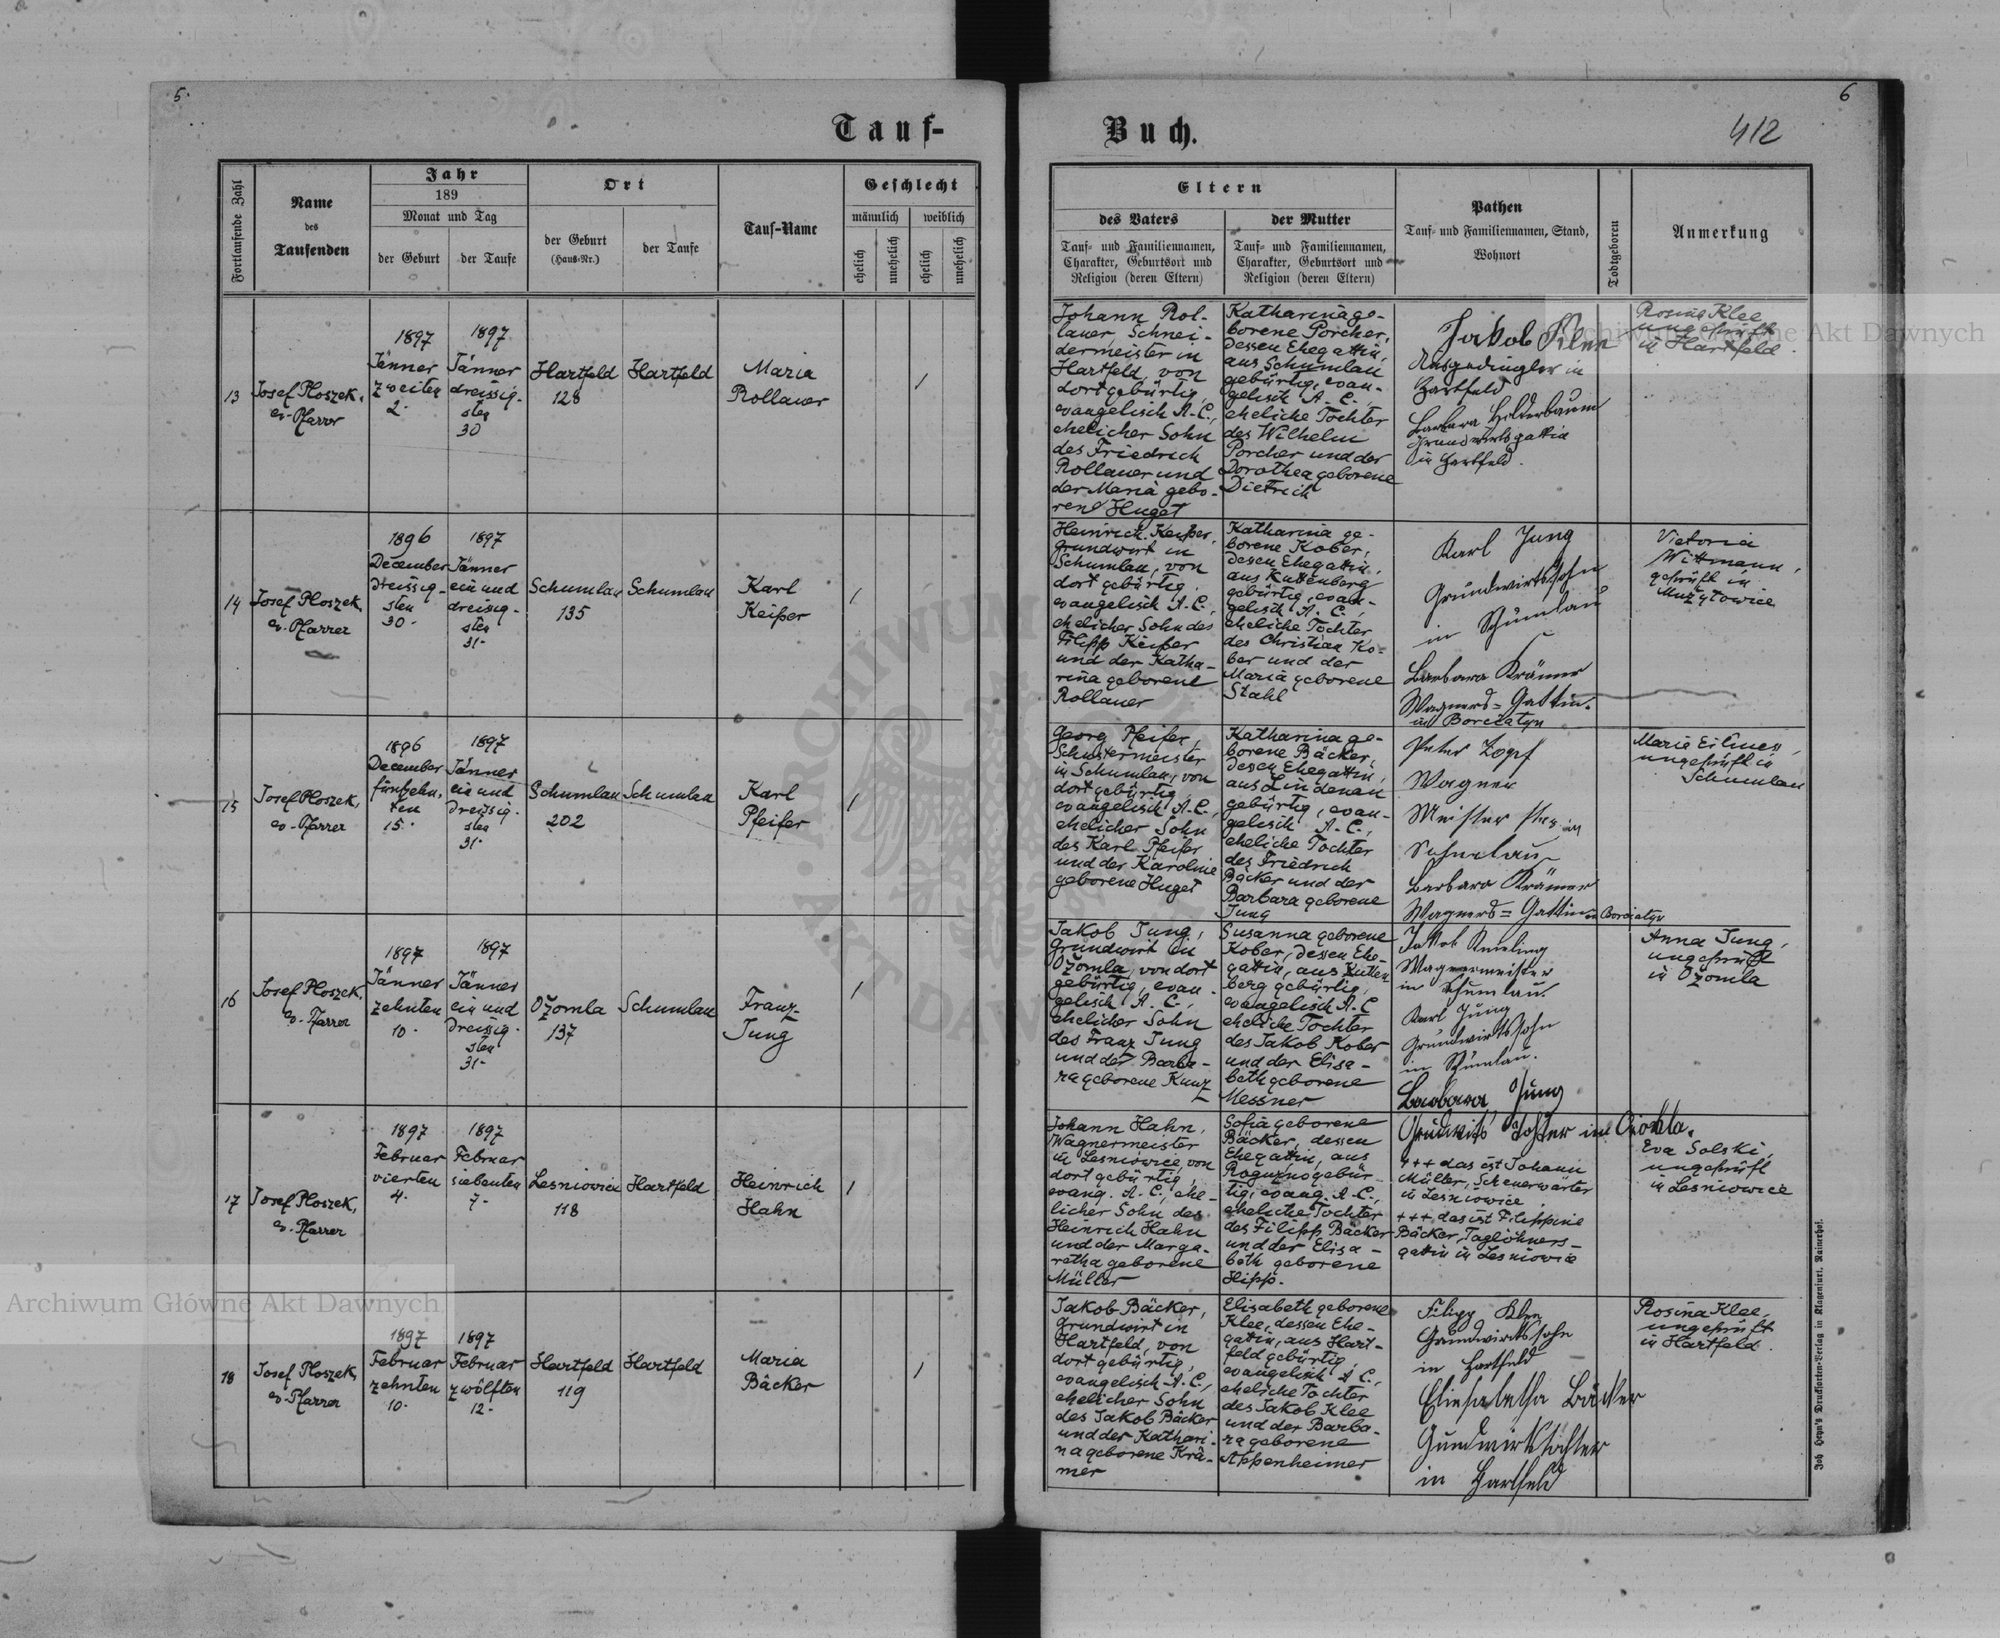 5.
6
412
Tauf-
Buch.
Fortlaufende Zahl
Name
des
Taufenden
Jahr
189
Monat und Tag
der Geburt
der Taufe
Ort
der Geburt
(Haus-Nr.)
der Taufe
Tauf-Name
Geschlecht
männlich
weiblich
ehelich
unehelich
ehelich
unehelich
Eltern
des Vaters
Tauf- und Familiennamen,
Charakter, Geburtsort und
Religion (deren Eltern)
der Mutter
Tauf- und Familiennamen,
Charakter, Geburtsort und
Religion (deren Eltern)
Pathen
Tauf- und Familiennamen, Stand,
Wohnort
Todtgeboren
Anmerkung
13
Josef Ploszek,
ev. Pfarrr
1897
Jänner
zweiten
2.
1897
Jänner
dreissig-
sten
30
Hartfeld
128
Hartfeld
Maria
Rollauer
1
Johann Rol-
lauer, Schnei-
dermeister in
Hartfeld, von
dort gebürtig,
evangelisch A.C.,
ehelicher Sohn
des Friedrich
Rollauer und
der Maria gebo-
rene Huget
Katharina ge-
borene Porcher,
dessen Ehegattin,
aus Schumlau
gebürtig, evan-
gelisch A.C.,
eheliche Tochter
des Wilhelm
Porcher und der
Dorothea geborene
Dietrich
Jakob Klee
Ausgedingler in
Hartfeld
Barbara Holderbaum
Grundwirtsgattin
in Hartfeld.
Rosina Klee
ungeprüft
in Hartfeld.
14
Josef Ploszek,
ev. Pfarrer
1896
December
dreissig-
sten
30.
1897
Jänner
ein und
dreisig-
sten
31.
Schumlau
135
Schumlau
Karl
Keißer
1
Heinrich Keißer,
Grundwirt in
Schumlau, von
dort gebürtig,
evangelisch A.C.,
ehelicher Sohn des
Filipp Keißer
und der Katha-
rina geborene
Rollauer
Katharina ge-
borene Kober,
dessen Ehegattin,
aus Kuttenberg
gebürtig, evan-
gelisch A.C.,
eheliche Tochter
des Christian Ko-
ber und der
Maria geborene
Stahl
Karl Jung
Grundwirtssohn
in Schumlau
Barbara Krämer
Wagners-Gattin.
in Borciatyn
Victoria
Wittmann,
geprüft in
Mużyłowice
15
Josef Ploszek,
ev. Pfarrer
1896
December
fünfzehn-
ten
15.
1897
Jänner
ein und
dreissig-
sten
31.
Schumlau
202
Schumlau
Karl
Pfeifer
1
Georg Pfeifer,
Schustermeister
in Schumlau, von
dort gebürtig,
evangelisch A.C.,
ehelicher Sohn
des Karl Pfeifer
und der Karoline
geborene Huget
Katharina ge-
borene Bäcker,
dessen Ehegattin,
aus Lindenau
gebürtig, evan-
gelisch A.C.,
eheliche Tochter
des Friedrich
Bäcker und der
Barbara geborene
Jung
Peter Zopf
Wagner
Meister in
Barbara Krämer
Wagners=Gattin in Borciatyn
Marie Eilmes,
ungeprüft in
Schumlau
16
Josef Ploszek,
ev. Pfarrer
1897
Jänner
zehnten
10.
1897
Jänner
ein und
dreissig-
sten
31.
Ożomla
137
Schumlau
Franz
Jung
1
Jakob Jung,
Grundwirt in
Ożomla, von dort
gebürtig, evan-
gelisch A.C.,
ehelicher Sohn
des Franz Jung
und der Barba-
ra geborene Kunz
Susanna geborene
Kober, dessen Ehe-
gattin, aus Kutten
berg gebürtig,
evangelisch A.C
eheliche Tochter
des Jakob Kober
und der Elisa-
beth geborene
Messner
Jakob Knieling
Wagnermeister
in Schumlau.
Karl Jung
Grundwirtssohn
in Schumlau.
Barbara Jung
Tochter in Ożomla.
Anna Jung,
ungeprüft
in Ożomla
17
Josef Ploszek,
ev. Pfarrer
1897
Februar
vierten
4.
1897
Februar
siebenten
7.
Lesniovice
118
Hartfeld
Heinrich
Hahn
1
Johann Hahn,
Wagnermeister
in Lesniowice, von
dort gebürtig,
evang. A.C., ehe-
licher Sohn des
Heinrich Hahn
und der Marga-
retha geborene
Müller
Sofia geborene
Bäcker, dessen
Ehegattin, aus
Roguzno gebür-
tig, evang. A.C.,
eheliche Tochter
des Filipp Bäcker
und der Elisa-
beth geborene
Hipp.
+++ das ist Johann
Müller, Scheuerwärter
in Lesniowice,
+++ das ist Filippine
Bäcker, Taglöhners-
gattin in Lesniowice
Eva Solski,
ungeprüft
in Lesniowice
18
Josef Ploszek,
ev. Pfarrer
1897
Februar
zehnten
10.
1897
Februar
zwölften
12.
Hartfeld
119
Hartfeld
Maria
Bäcker
1
Jakob Bäcker,
Grundwirt in
Hartfeld, von
dort gebürtig,
evangelisch A.C.,
ehelicher Sohn
des Jakob Bäcker
und der Kathari-
na geborene Krä-
mer
Elisabeth geborene
Klee, dessen Ehe-
gattin, aus Hart-
feld gebürtig,
evangelisch A.C.,
eheliche Tochter
des Jakob Klee
und der Barba-
ra geborene
Appenheimer
Filipp Klee
Grundwirtssohn
in Hartfeld
Eliesabetha Bäcker
Gundwirtstochter
in Hartfeld
Rosina Klee,
ungeprüft
in Hartfeld.
Joh. Heyn's Drucksorten-Verlag in Klagenfurt, Rainerhof.
Archiwum Główne Akt Dawnych
Archiwum Główne Akt Dawnych